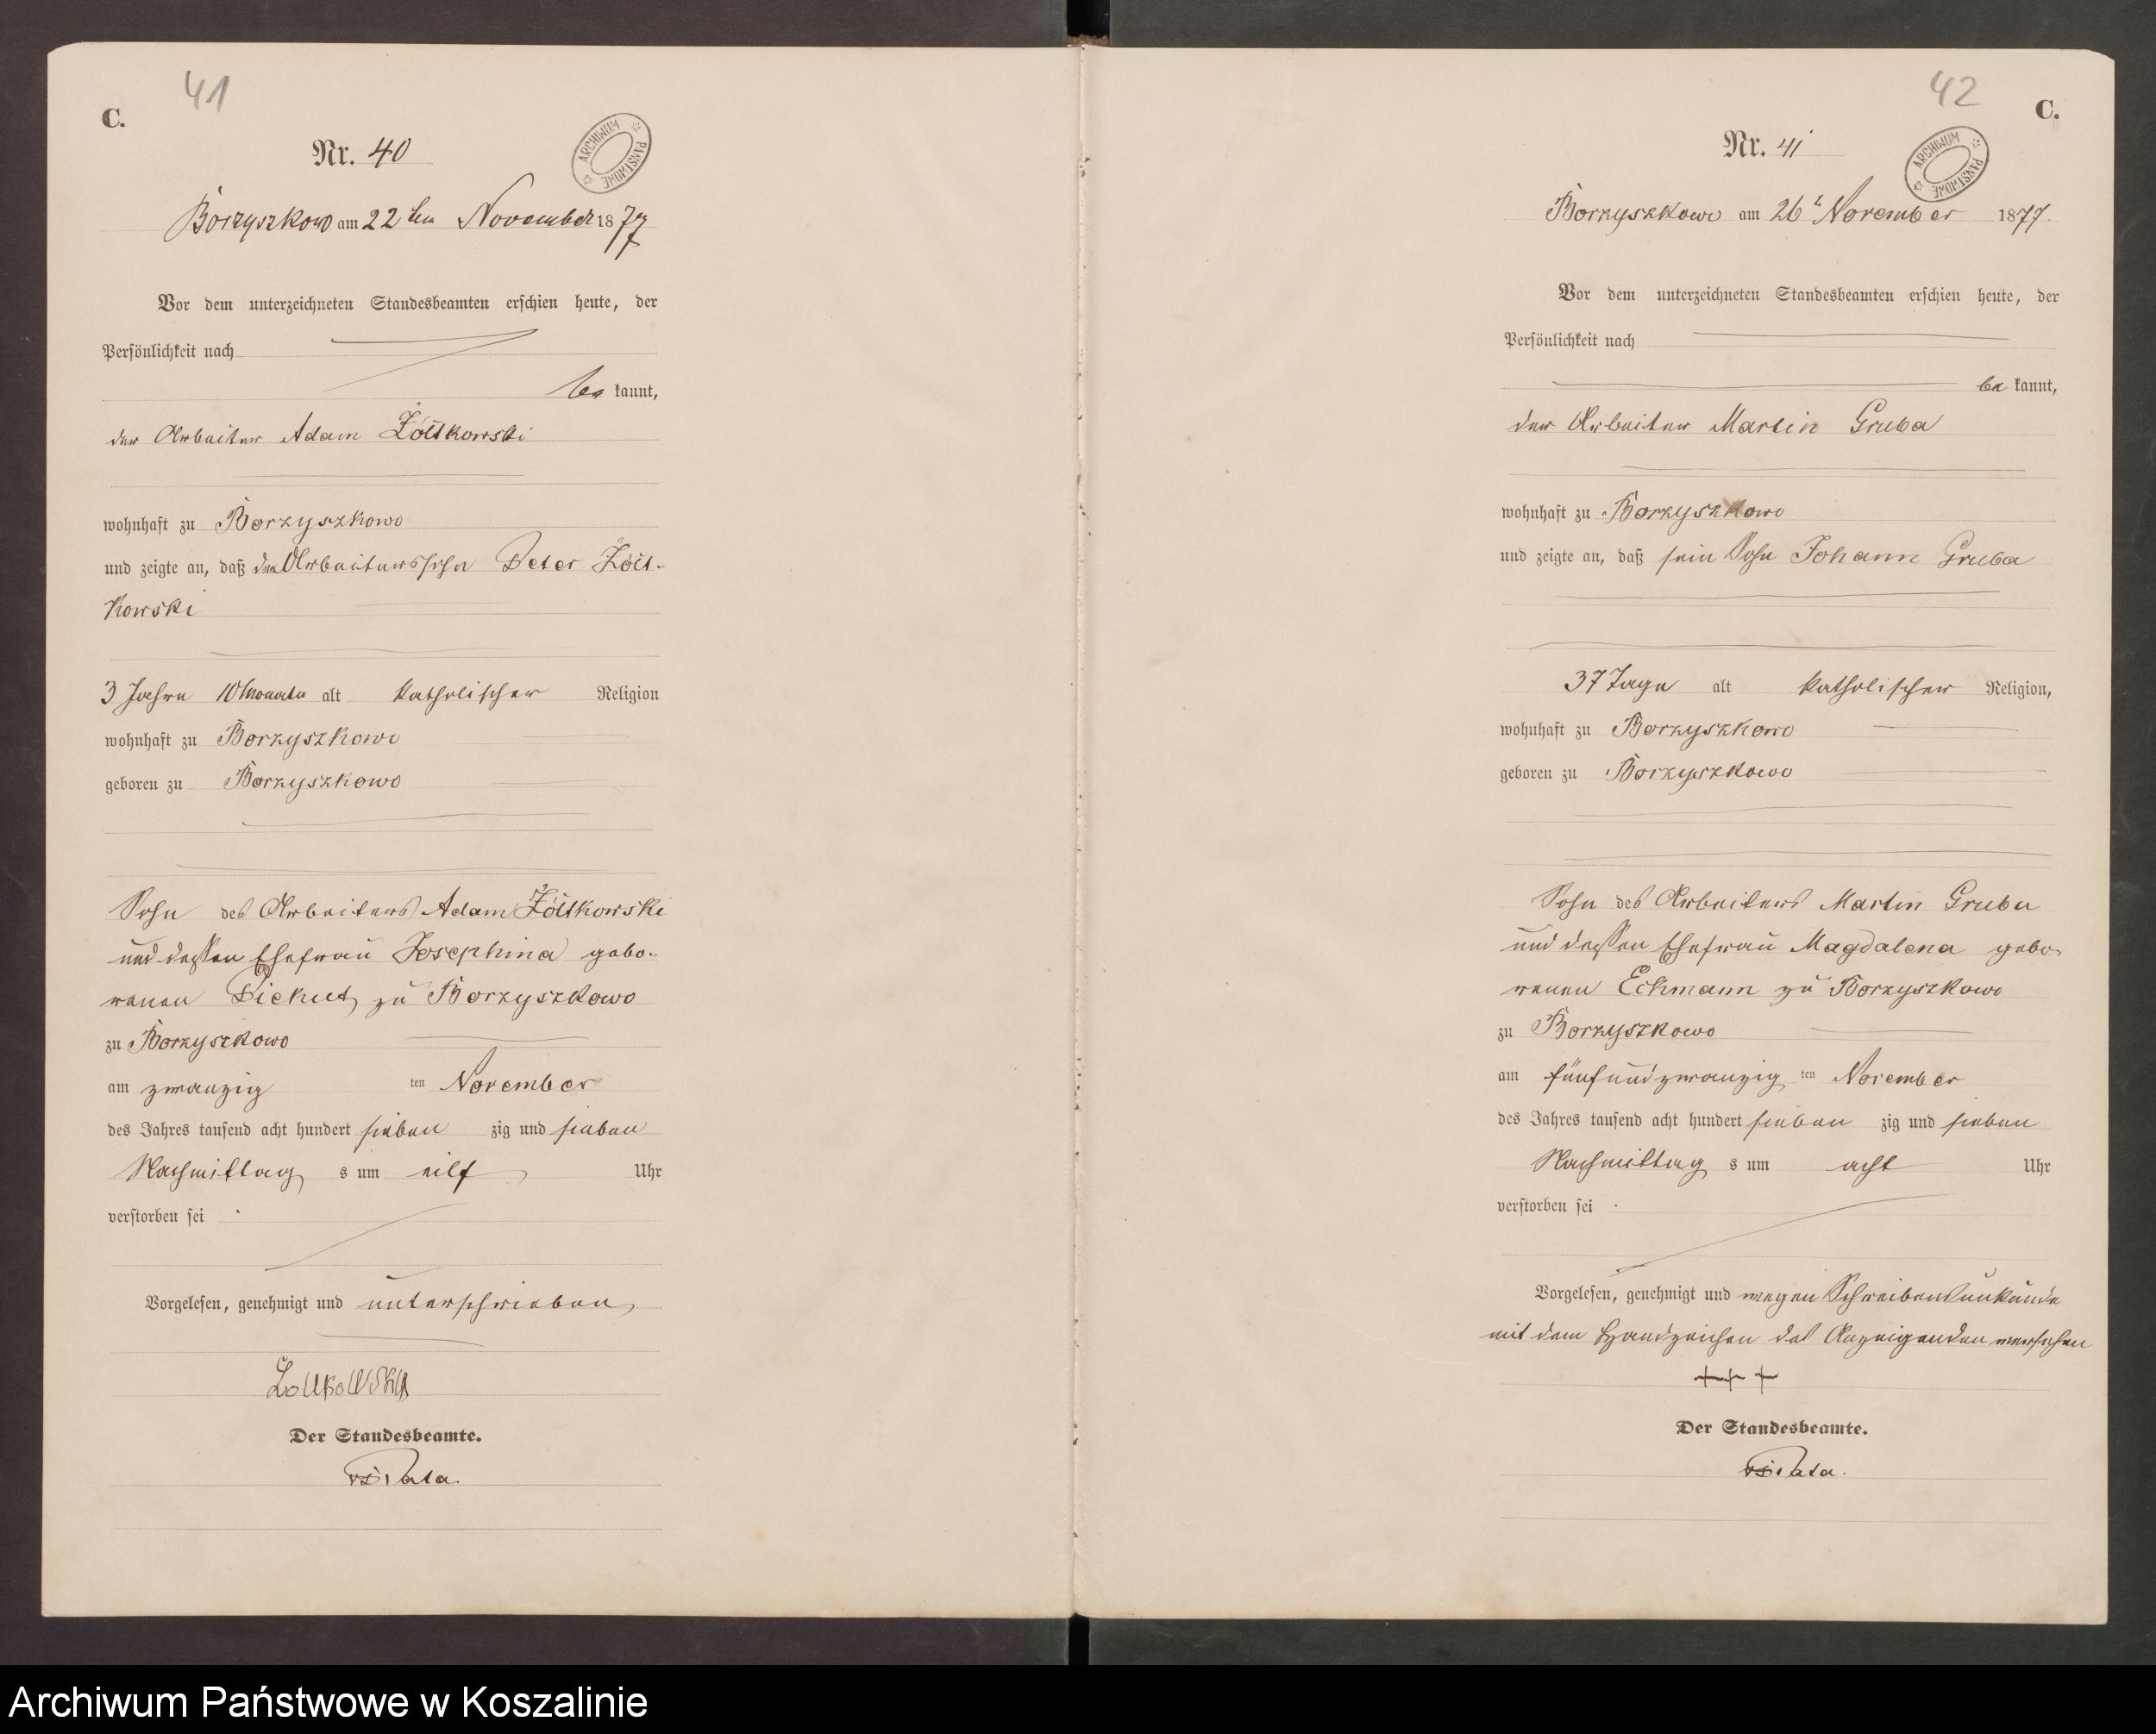 41
C.
Nr. 40
ARCHIWUM PAŃSTWOWE
Borzyszkowo am 22ten November 1877
Vor dem unterzeichneten Standesbeamten erschien heute, der
Persönlichkeit nach
bekannt,
der Arbeiter Adam Żółtkowski
wohnhaft zu Borzyszkowo
und zeigte an, daß der Arbeiterssohn Peter Żółt-
kowski
3 Jahre 10 Monate alt katholischer Religion
wohnhaft zu Borzyszkowo
geboren zu Borzyszkowo
Sohn des Arbeiters Adam Żółtkowski
und dessen Ehefrau Josephina gebo-
renen Piekut, zu Borzyszkowo
zu Borzyszkowo
am zwanzig ten November
des Jahres tausend acht hundert sieben zig und sieben
Nachmittag s um eilf Uhr
verstorben sei
Vorgelesen, genehmigt und unterschrieben
Der Standesbeamte.
Pata.
42
C.
Nr. 41
ARCHIWUM PAŃSTWOWE
Borzyszkowo am 26t November 1877.
Vor dem unterzeichneten Standesbeamten erschien heute, der
Persönlichkeit nach
bekannt,
der Arbeiter Martin Gruba
wohnhaft zu Borzyszkowo
und zeigte an, daß sein Sohn Johann Gruba
37 Tage alt katholischer Religion,
wohnhaft zu Borzyszkowo
geboren zu Borzyszkowo
Sohn des Arbeiters Martin Gruba
und dessen Ehefrau Magdalena gebo-
renen Eckmann zu Borzyszkowo
zu Borzyszkowo
am fünfundzwanzig ten November
des Jahres tausend acht hundert sieben zig und sieben
Nachmittag s um acht Uhr
verstorben sei
Vorgelesen, genehmigt und wegen Schreibensunkunde
mit dem Handzeichen des Anzeigenden versehen
+++
Der Standesbeamte.
Pata.
Archiwum Państwowe w Koszalinie